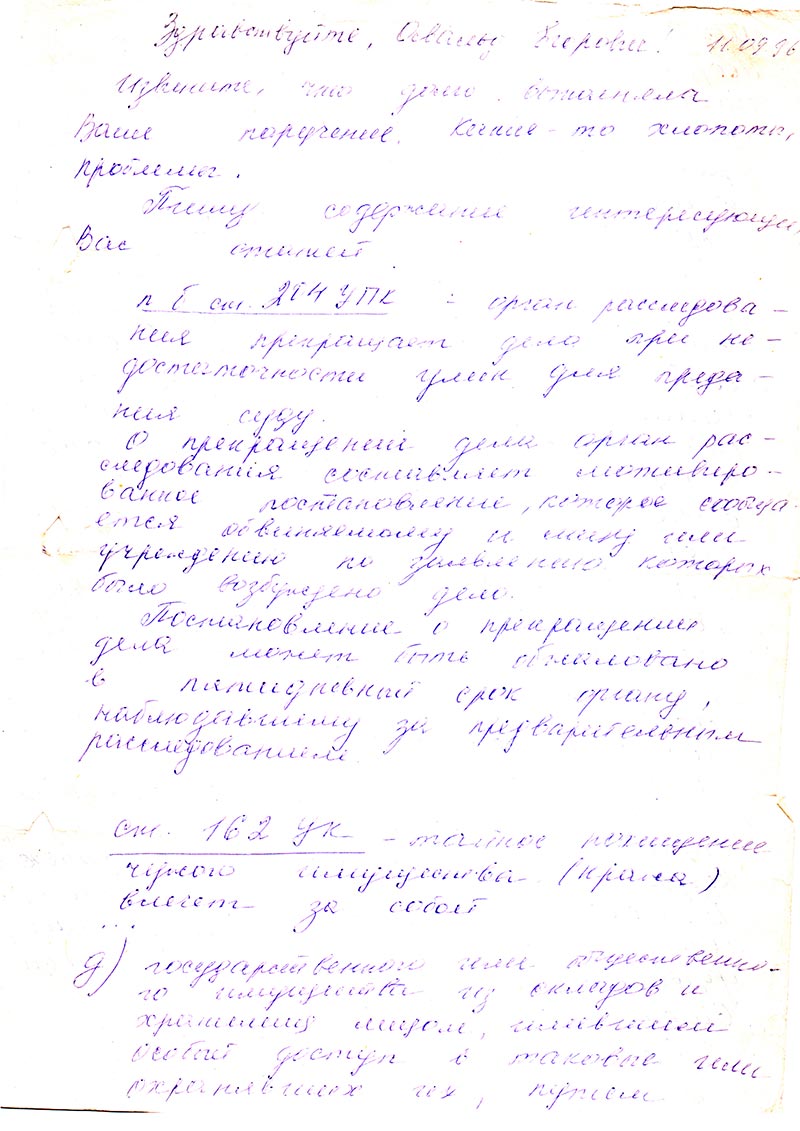 Здравствуйте, Освальд Егорович! 11.09.96
Извините, что долго выполняла
Ваше поручение. Какие-то хлопоты,
проблемы.
Пишу содержание интересующих
Вас статей
п Б ст. 204 УПК - орган расследова-
ния прекращает дело при не-
достаточности улик для преда-
ния суду.
О прекращении дела орган рас-
следования составляет мотивиро-
ванное постановление, которое сообща-
ется обвиняемому и лицу или
учреждению по заявлению которых
было возбуждено дело.
Постановление о прекращении
дела может быть обжаловано
в пятидневный срок органу,
наблюдавшему за предварительным
расследованием.
ст. 162 УК - тайное похищение
чужого имущества (кража)
влечет за собой
...
д) государственного или общественно-
го имущества из складов и
хранилищ лицом, имевшим
особый доступ в таковые или
охранявших их, путем